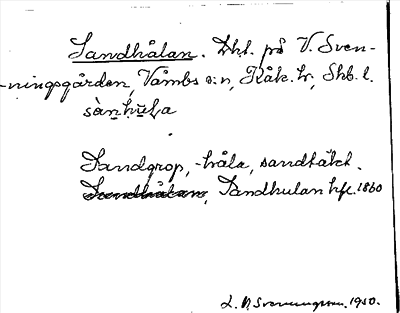 Sandhålan. Dht. på V. Sven-
-ningsgården, Våmbs s:n, Kåk. hr, Skb. l.
sàn̲hu̅ḷa
Sandgrop, -håla, sandtäkt.
Sandhålan, Sandhulan hfl. 1860
L. N. Svenungsson. 1930.